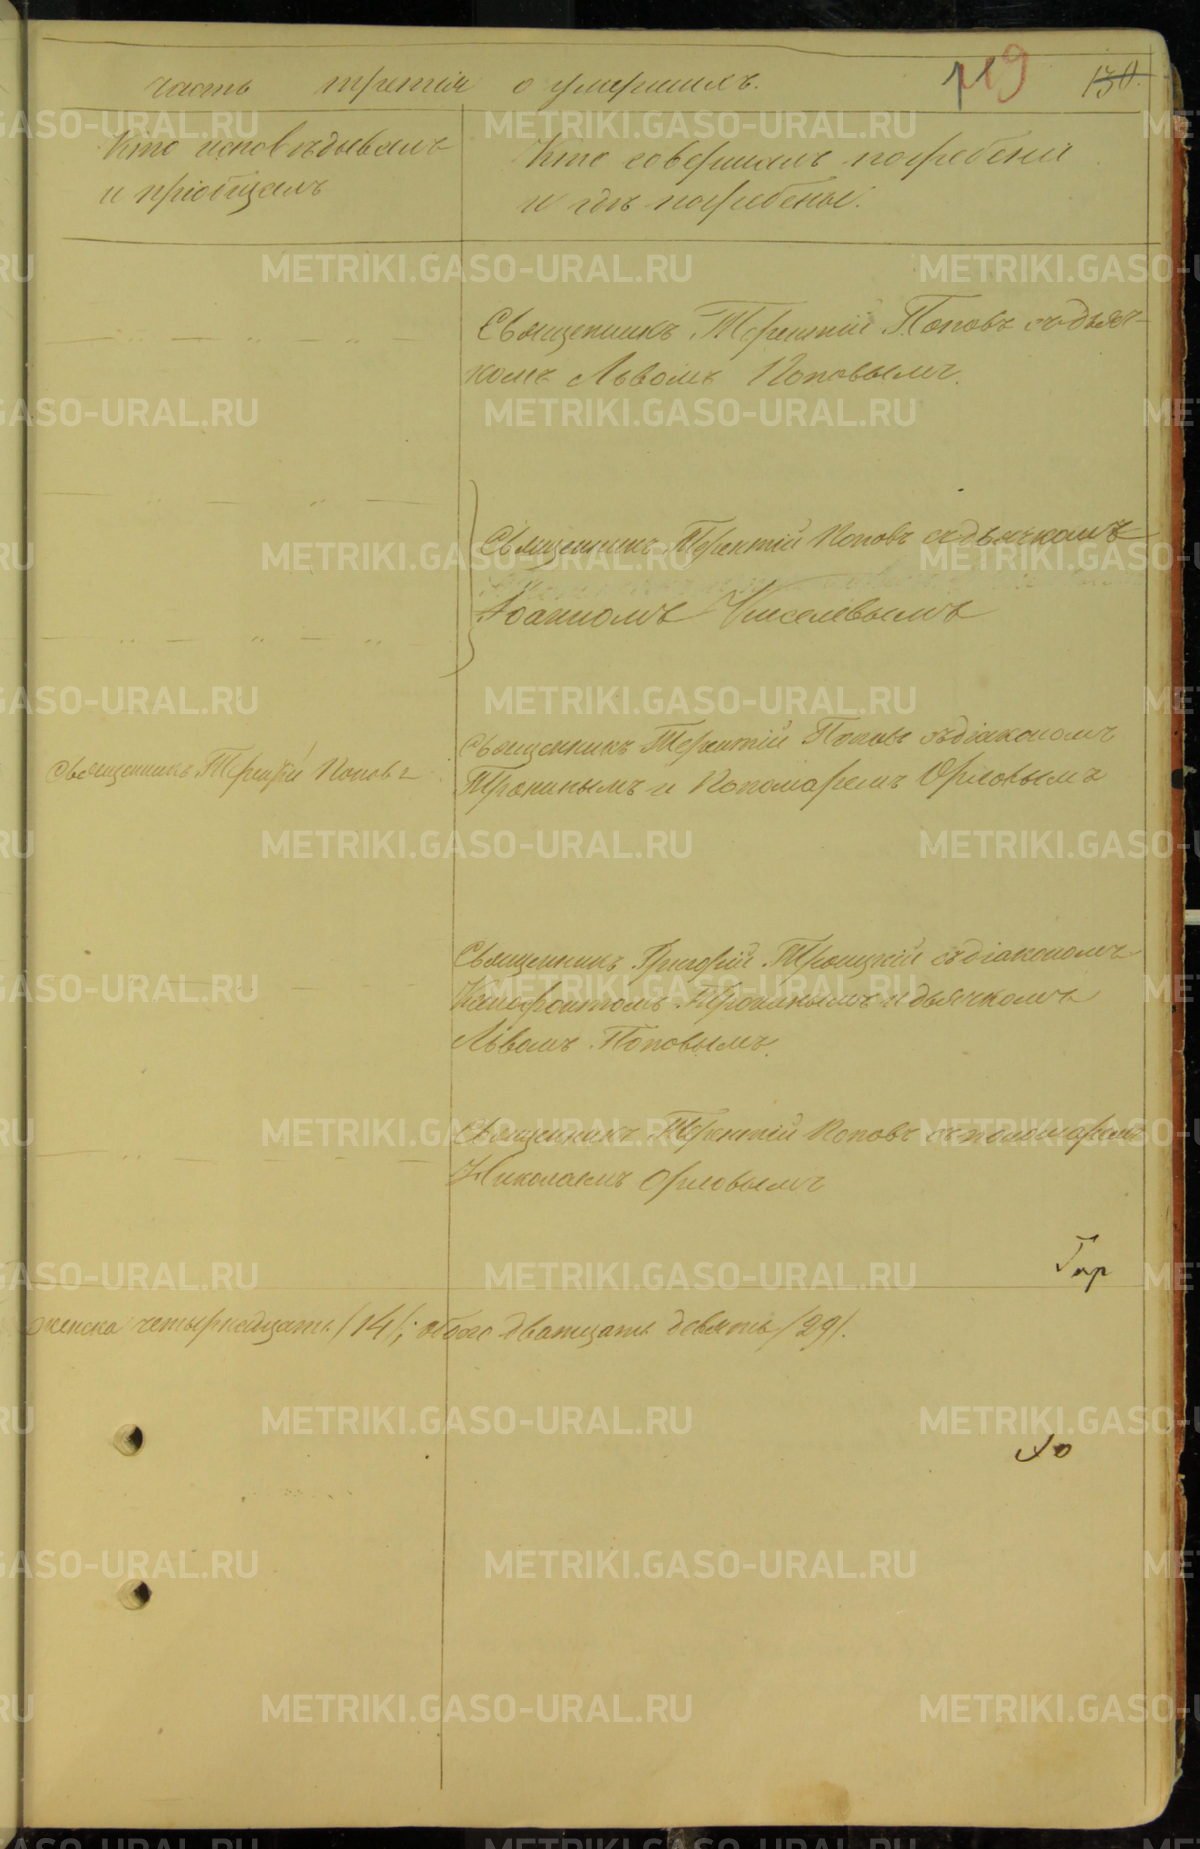 часть третiя о умершихъ.
119 130.
Кто исповѣдывалъ
и прiобщалъ
Кто совершалъ погребенiе
и гдѣ погребены.
Священникъ Терентiй Поповъ съ дьяч-
комъ Львомъ Поповымъ.
Священникъ Терентiй Поповъ съ дьячкомъ
Iоанномъ Киселевымъ
Священникъ Терентiй Поповъ
Священникъ Терентiй Поповъ съ дiакономъ
Прокинымъ и Пономаремъ Орловымъ
Священникъ Григорiй Троицкiй съ дiакономъ
Ксенофонтомъ и дьячкомъ
Львомъ Поповымъ.
Священникъ Терентiй Поповъ съ пономаремъ
Николаемъ Орловымъ
женска четырнадцать /14/; обоего дватцать девять /29/.
METRIKI.GASO-URAL.RU